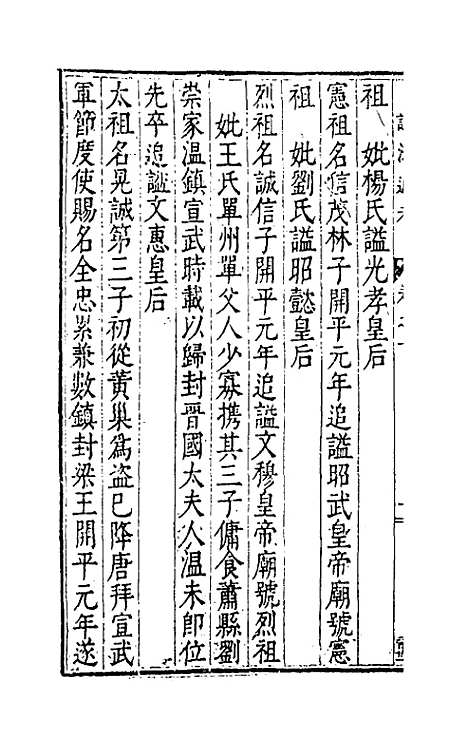 祖　妣楊氏謚光孝皇后
憲祖名信茂林子開平元年追謚昭武皇帝廟號憲
祖　妣劉氏謚昭懿皇后
烈祖名誠信子開平元年追謚文穆皇帝廟號烈祖
妣王氏單州單父人少寡携其三子傭食蕭縣劉
崇家温鎮宣武時載以歸封晋國太夫人温未即位
先卒追謚文惠皇后
太祖名晃誠第三子初從黄巢爲盗巳降唐拜宣武
軍節度使賜名全忠累兼數鎮封梁王開平元年遂